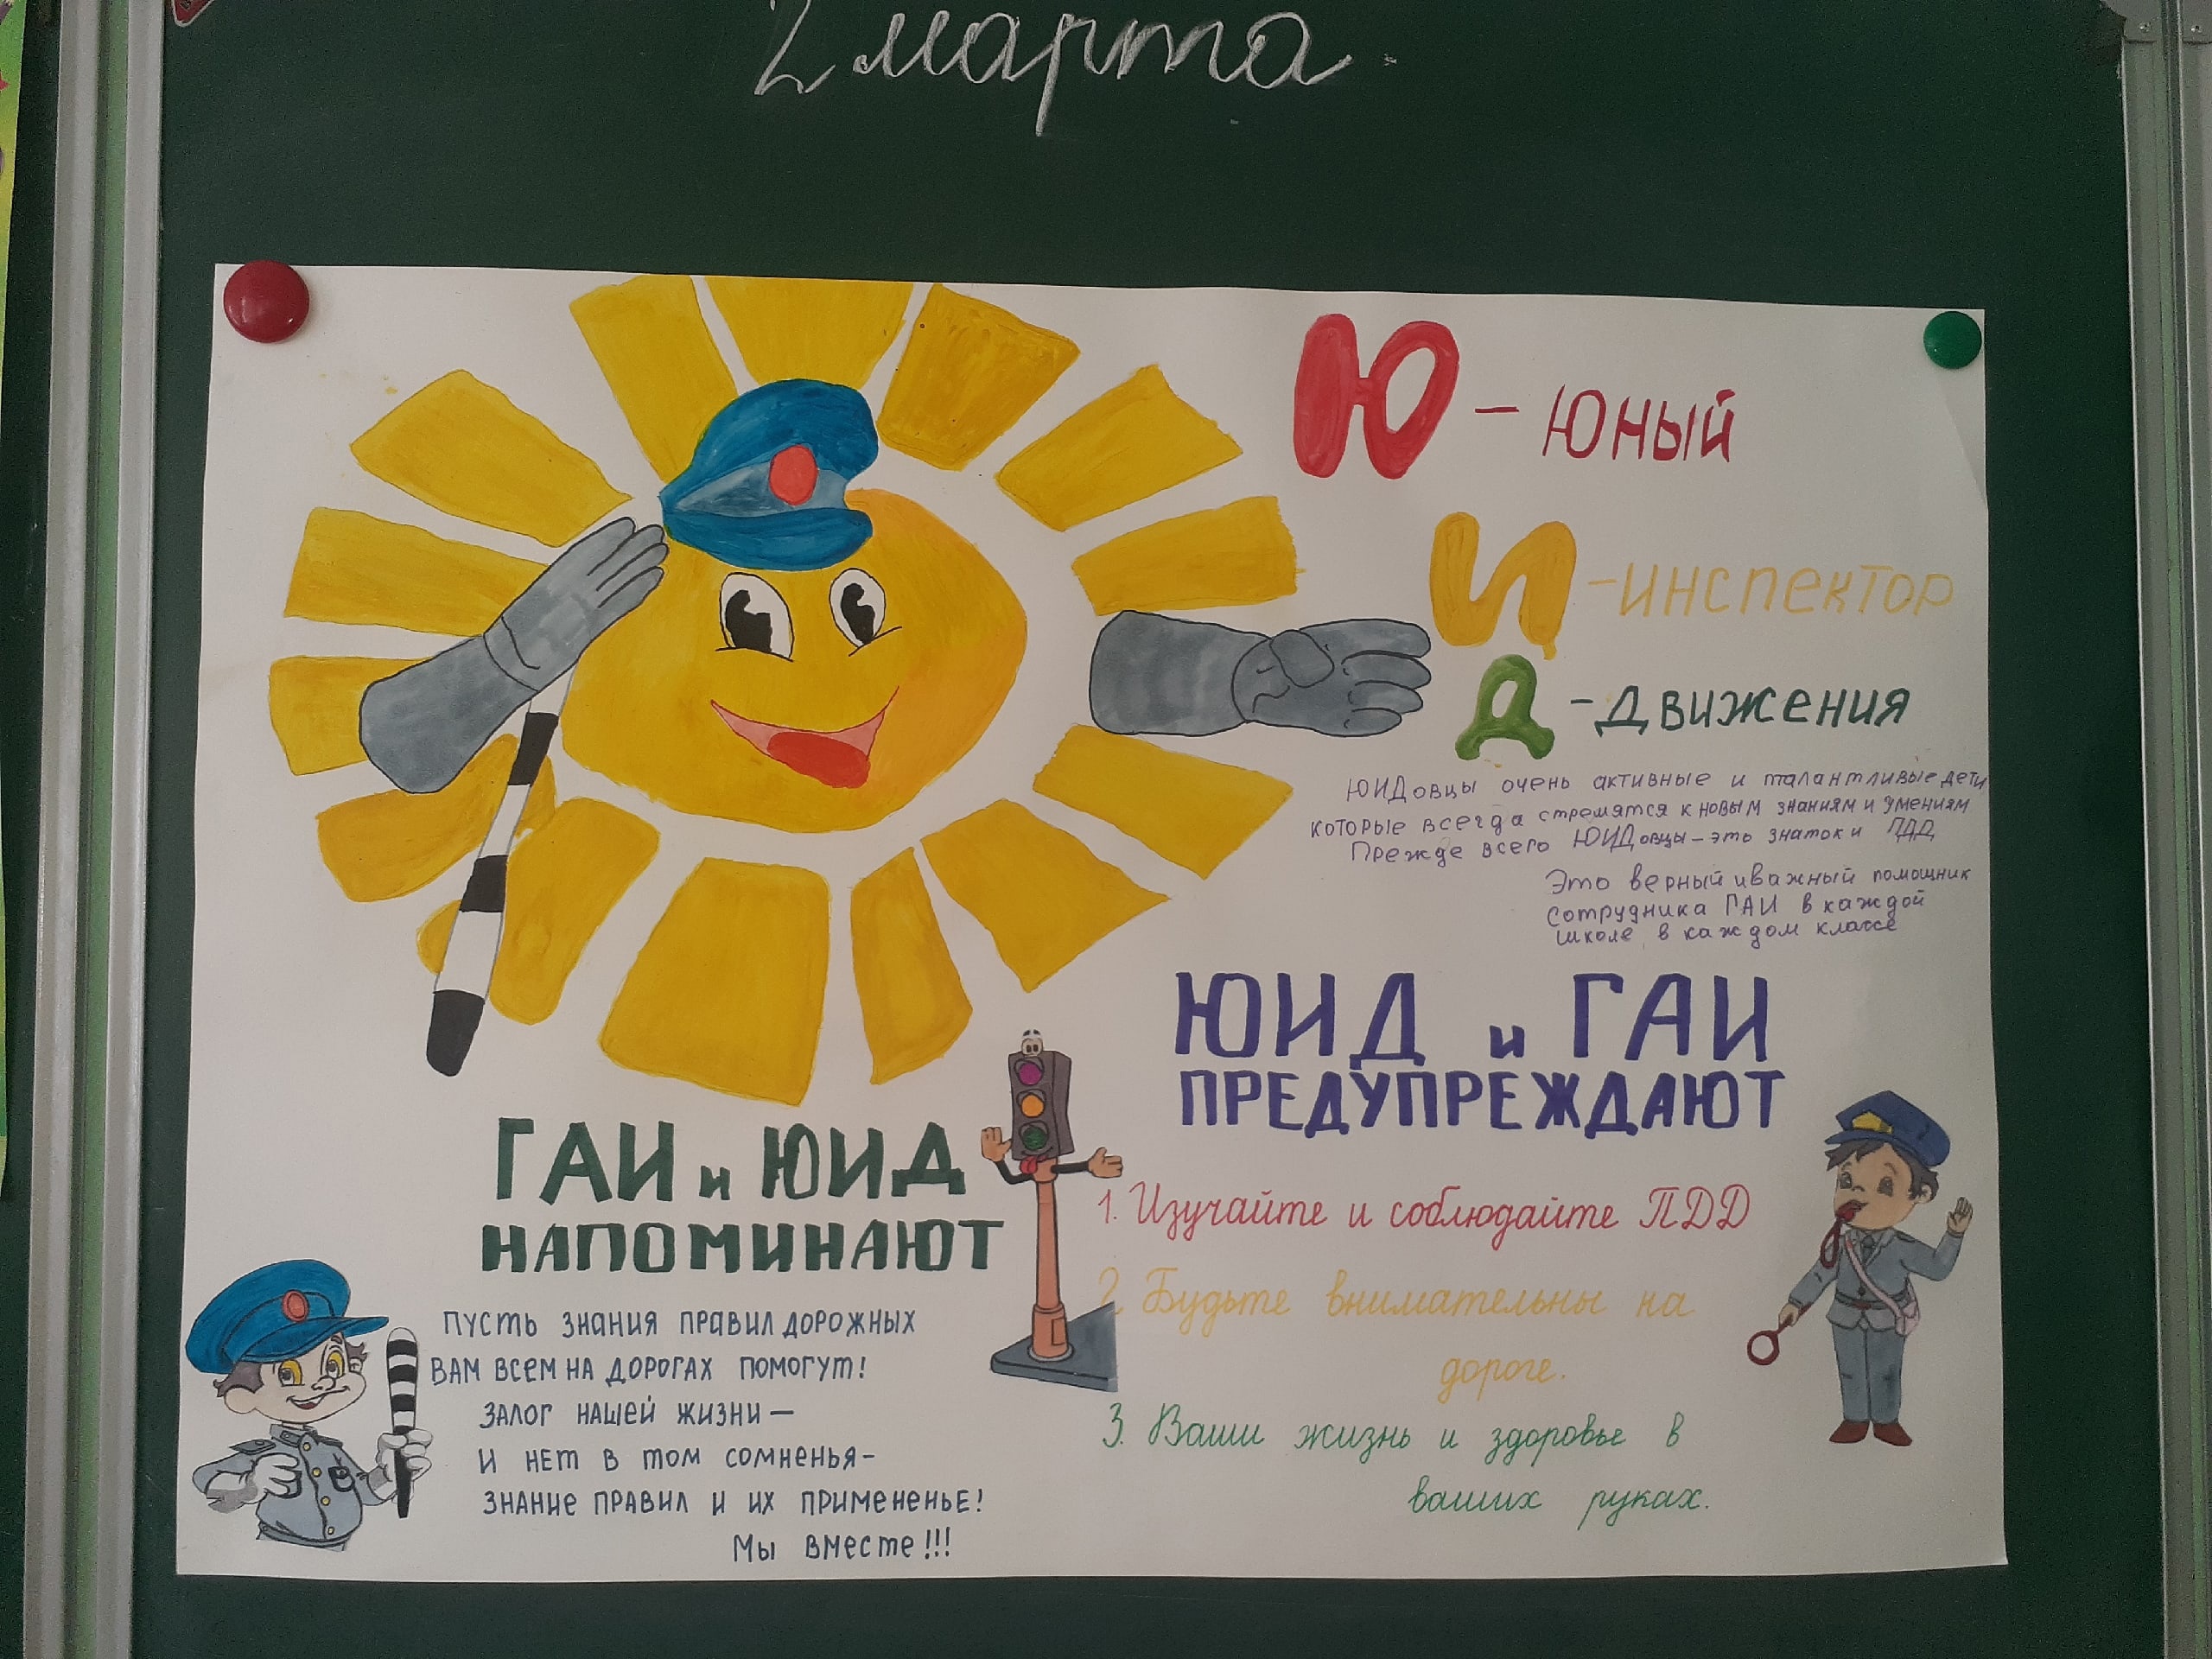 2 марта
Ю - юный
И - инспектор
Д - движения
ЮИДовцы очень активные и талантливые дети
которые всегда стремятся к новым знаниям и умениям
Прежде всего ЮИДовцы - это знатоки ПДД
Это верный и важный помощник
сотрудника ГАИ в каждой
школе, в каждом классе
ЮИД и ГАИ
ПРЕДУПРЕЖДАЮТ
1. Изучайте и соблюдайте ПДД
2. Будьте внимательны на
дороге.
3. Ваши жизнь и здоровье в
ваших руках.
ГАИ и ЮИД
НАПОМИНАЮТ
Пусть знания правил дорожных
вам всем на дорогах помогут!
Залог нашей жизни —
и нет в том сомненья -
знание правил и их примененье!
Мы вместе!!!